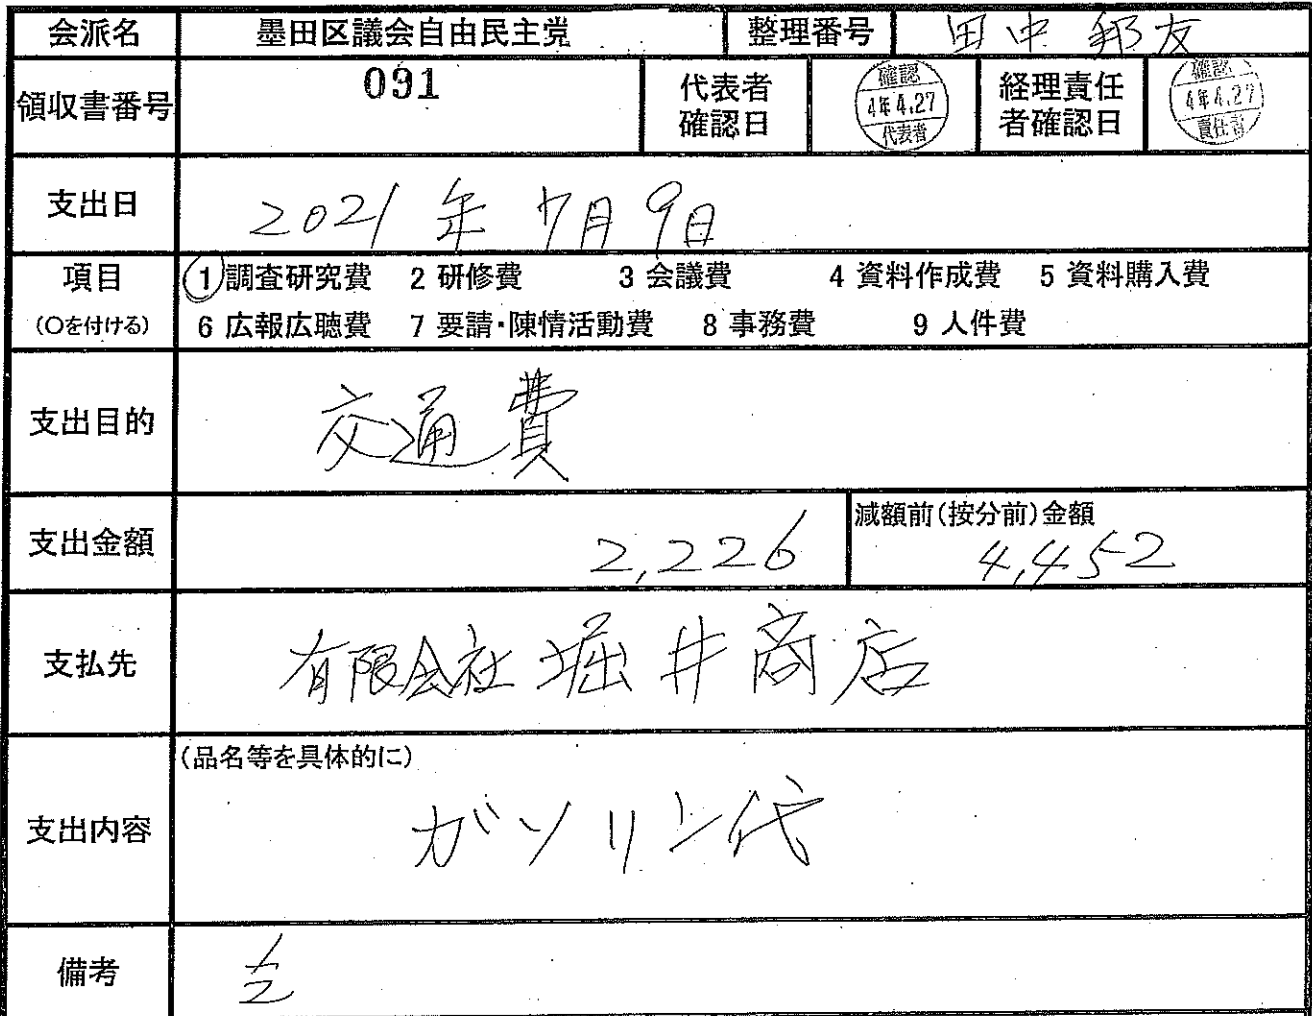 会派名 墨田区議会自由民主党 整理番号 田中 邦友
領収書番号 091 代表者確認日 確認 4年4.27 代表者 経理責任者確認日 確認 4年4.27 責任者
支出日 2021年7月9日
項目 (○を付ける) 1 調査研究費 2 研修費 3 会議費 4 資料作成費 5 資料購入費
6 広報広聴費 7 要請・陳情活動費 8 事務費 9 人件費
支出目的 交通費
支出金額 2,226 減額前(按分前)金額 4,452
支払先 有限会社 堀井商店
支出内容 (品名等を具体的に)
ガソリン代
備考 1/2